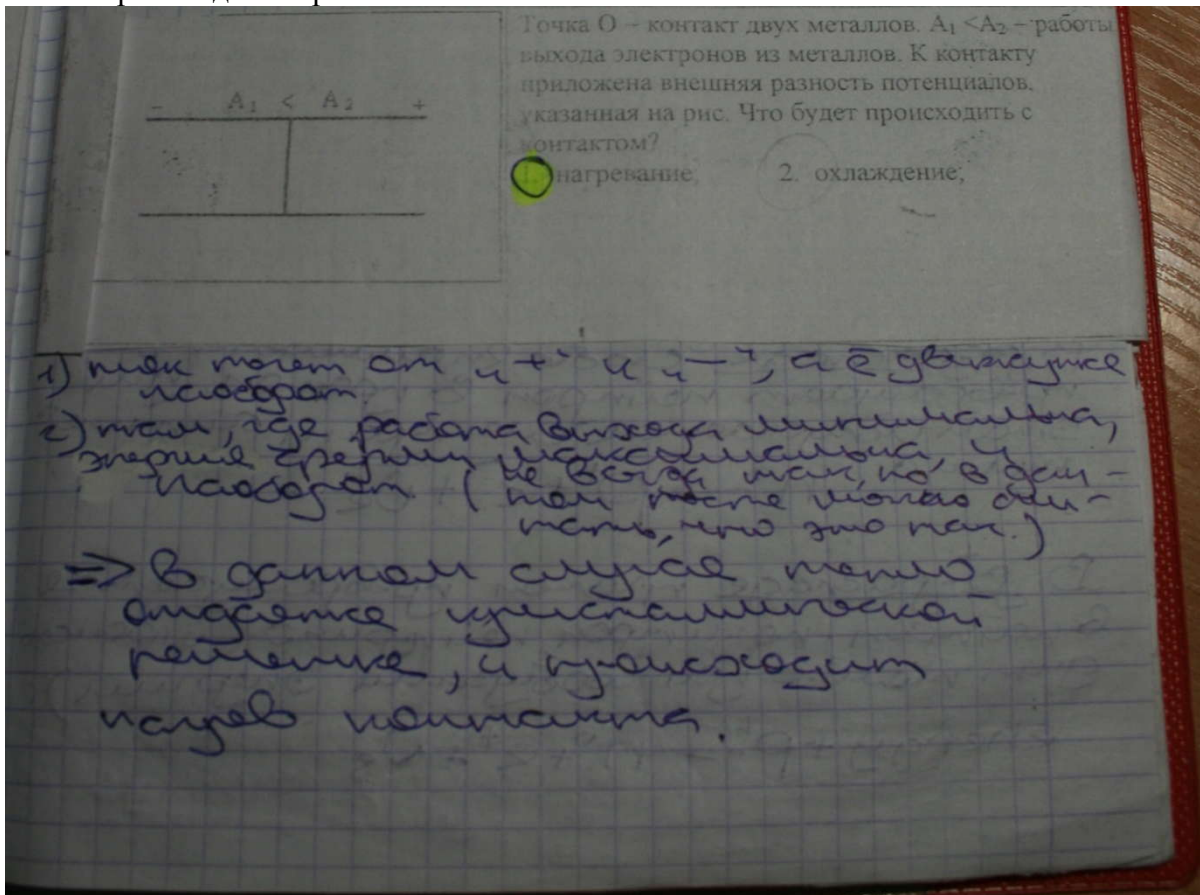 Точка О – контакт двух металлов. A₁ <A₂ – работы
выхода электронов из металлов. К контакту
приложена внешняя разность потенциалов,
указанная на рис. Что будет происходить с
контактом?
1. нагревание; 2. охлаждение;
- A₁ < A₂ +
1) ток течет от "+" к "-", а ē движутся
наоборот.
2) там, где работа выхода минимальна,
энергия Ферми максимальна, и
наоборот. (не всегда так, но в дан-
ном тесте можно счи-
тать, что это так.)
=> В данном случае тепло
отдается кристаллической
решетке, и происходит
нагрев контакта.